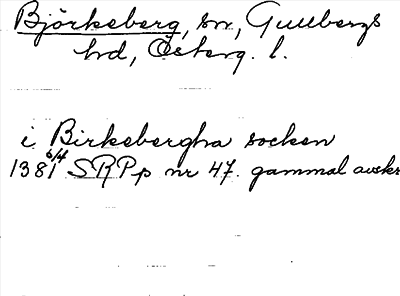 Björkeberg, sn, Gullbergs
hrd, Österg. l.
i Birkebergha socken
1381 6/4 SRPp nr 47. gammal avskr